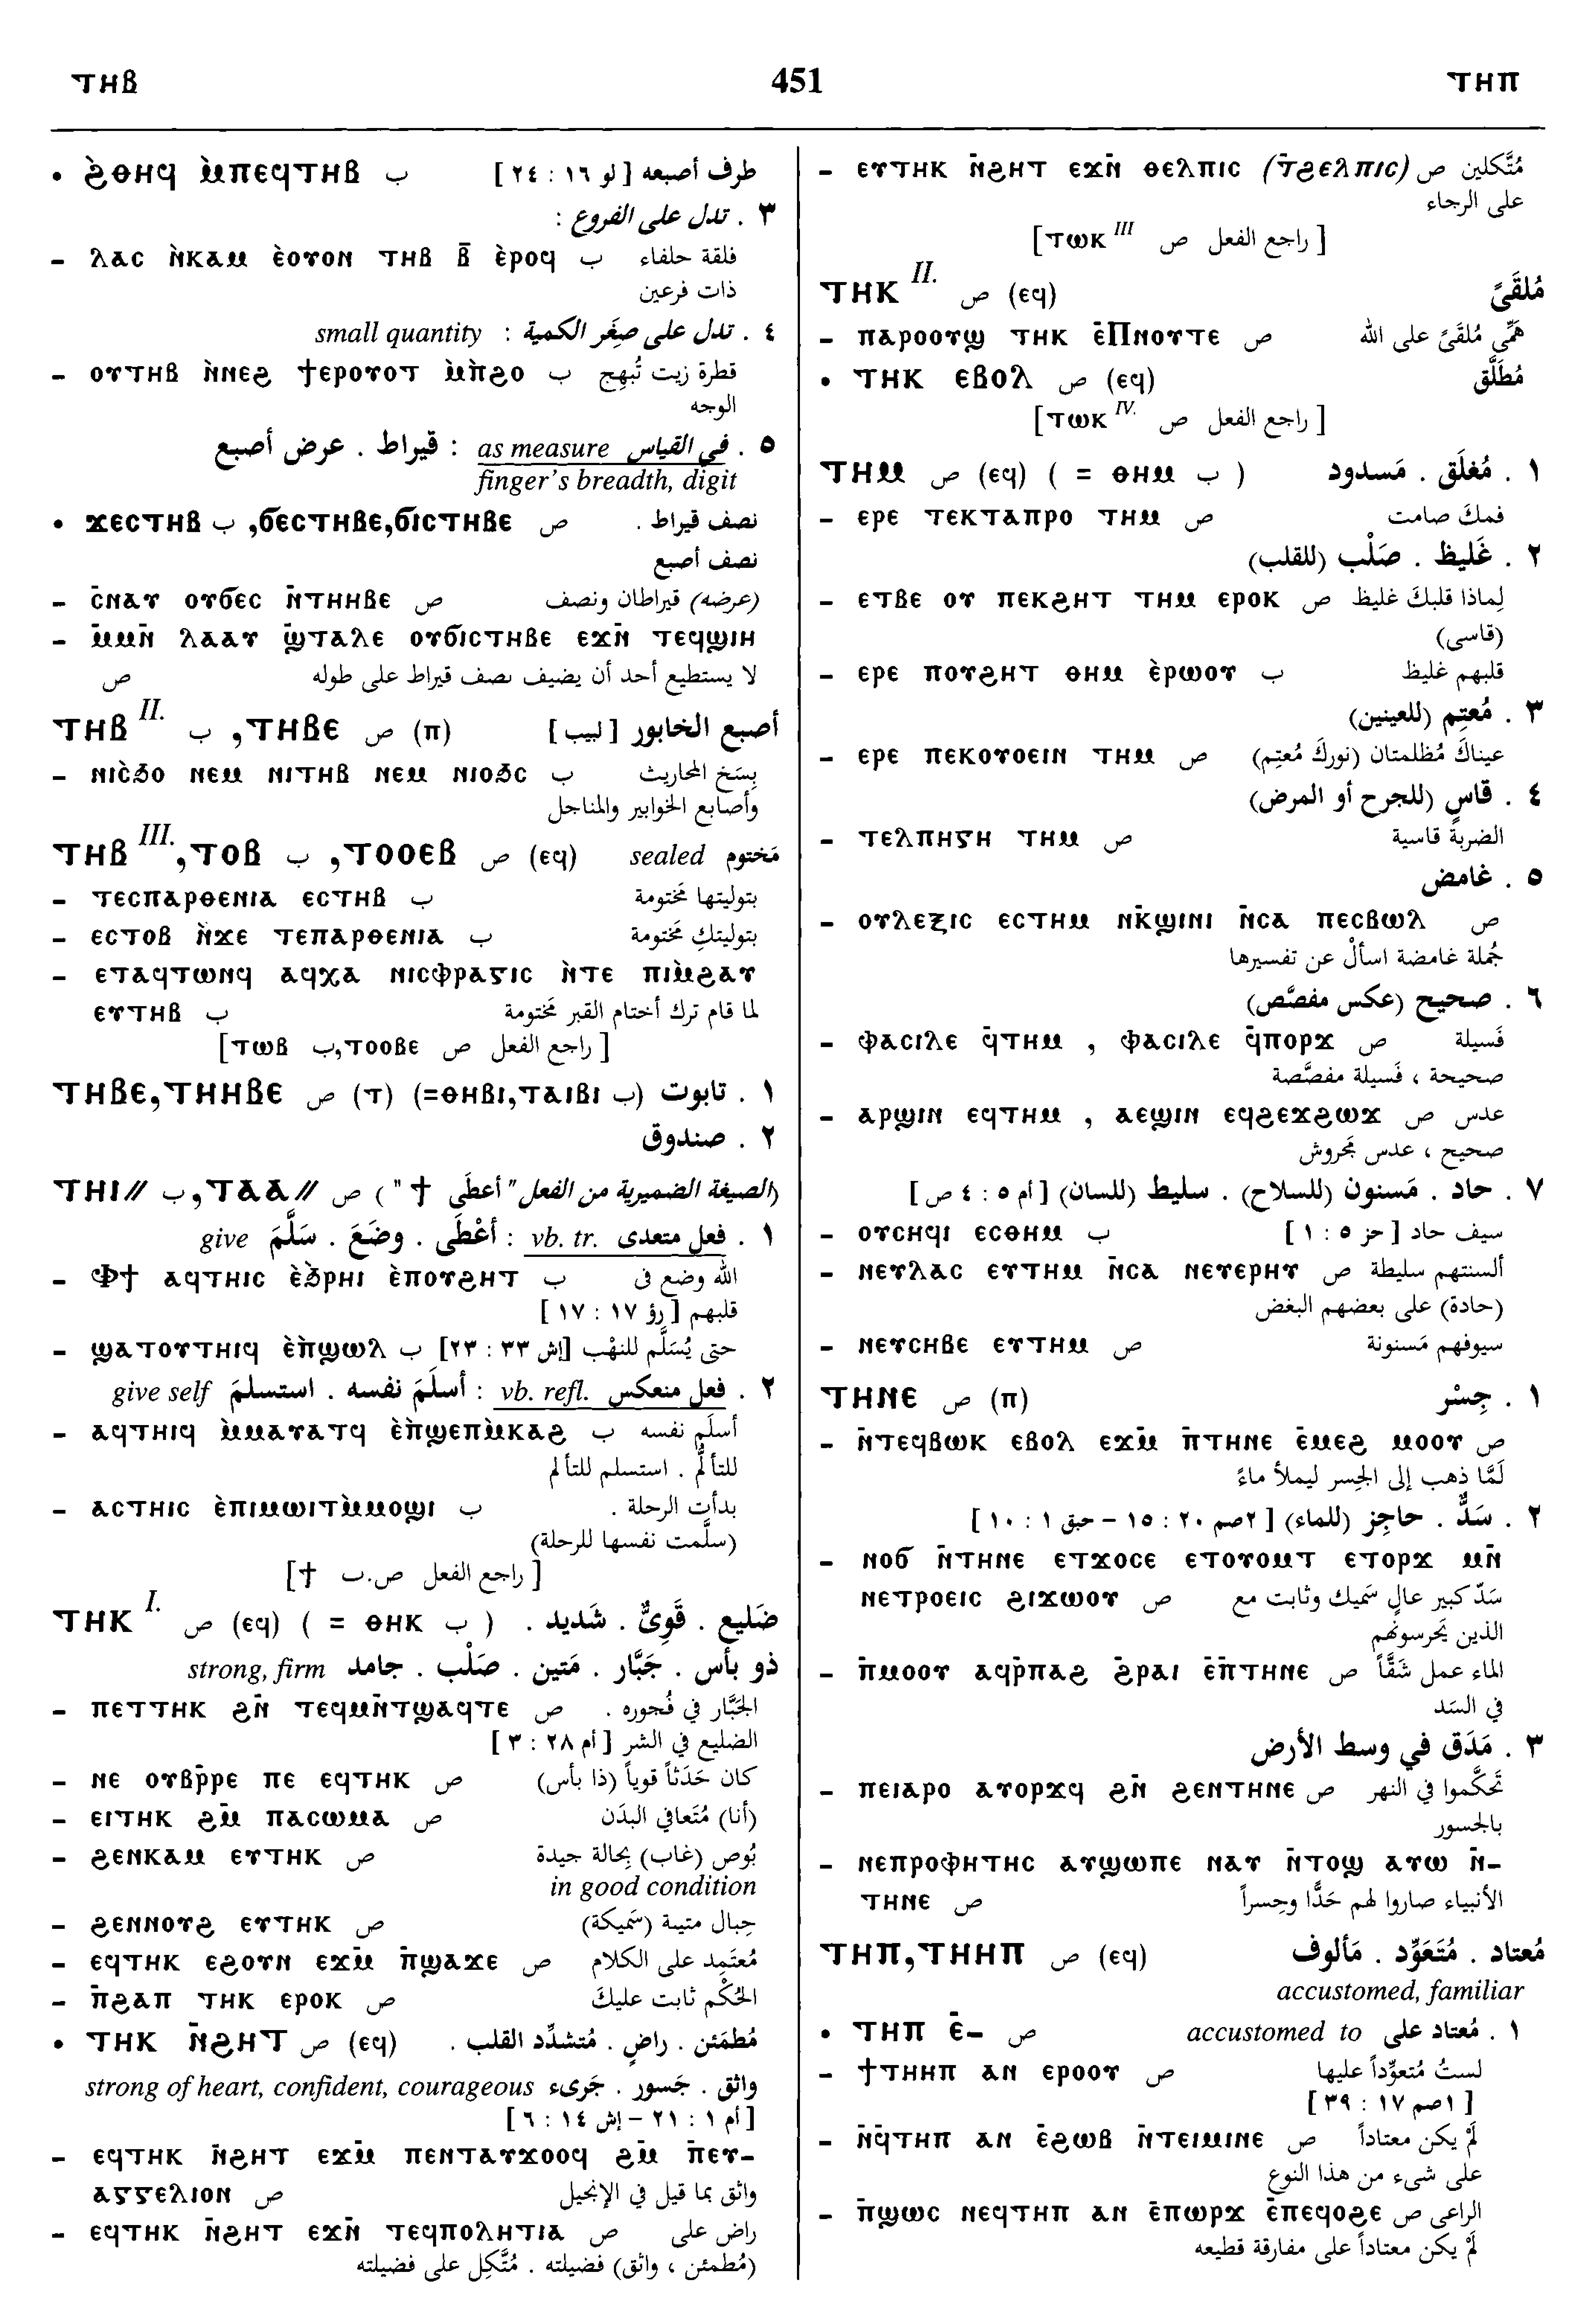 ⲧⲏⲃ 451 ⲧⲏⲡ
• ϩ̀ⲑⲏϥ ⲙ̀ⲡⲉϥⲧⲏⲃ ب طرف أصبعه [لو ١٦ : ٢٤]
٣ . تدل على الفروع :
– ⲗⲁⲥ ⲛ̀ⲕⲁⲙ ⲉ̀ⲟⲩⲟⲛ ⲧⲏⲃ ⲃ̄ ⲉ̀ⲣⲟϥ ب فلقة حلفاء
ذات فرعين
٤ . تدل على صِغَر الكمية : small quantity
– ⲟⲩⲧⲏⲃ ⲛ̀ⲛⲉϩ ϯⲉⲣⲟⲩⲟⲧ ⲙ̀ⲡ̀ϩⲟ ب قطرة زيت تُبهِج
الوجه
٥ . في القياس as measure : قيراط . عرض أصبع
finger's breadth, digit
• ϫⲉⲥⲧⲏⲃ ب ,ϭⲉⲥⲧⲏⲃⲉ,ϭⲓⲥⲧⲏⲃⲉ ص نصف قيراط .
نصف أصبع
– ⲥ̄ⲛⲁⲩ ⲟⲩϭⲉⲥ ⲛ̄ⲧⲏⲏⲃⲉ ص (عرضه) قيراطان ونصف
– ⲙ̄ⲙⲛ̄ ⲗⲁⲁⲩ ϣ̄ⲧⲁⲗⲉ ⲟⲩϭⲓⲥⲧⲏⲃⲉ ⲉϫⲛ̄ ⲧⲉϥϣⲓⲏ
لا يستطيع أحد أن يضيف نصف قيراط على طوله ص
ⲧⲏⲃ II. ب ,ⲧⲏⲃⲉ ص (ⲡ) أصبع الخابور [لبيب]
– ⲛⲓⲥ̀ϧⲟ ⲛⲉⲙ ⲛⲓⲧⲏⲃ ⲛⲉⲙ ⲛⲓⲟϧⲥ ب بِسَخ المحاريث
وأصابع الخوابير والمناجل
ⲧⲏⲃ III.,ⲧⲟⲃ ب ,ⲧⲟⲟⲉⲃ ص (ⲉϥ) sealed مَختوم
– ⲧⲉⲥⲡⲁⲣⲑⲉⲛⲓⲁ ⲉⲥⲧⲏⲃ ب بتوليتها مَختومة
– ⲉⲥⲧⲟⲃ ⲛ̀ϫⲉ ⲧⲉⲡⲁⲣⲑⲉⲛⲓⲁ ب بتوليتكِ مَختومة
– ⲉⲧⲁϥⲧⲱⲛϥ ⲁϥⲭⲁ ⲛⲓⲥⲫⲣⲁⲅⲓⲥ ⲛ̀ⲧⲉ ⲡⲓⲙ̀ϩⲁⲩ
ⲉⲩⲧⲏⲃ ب لما قام ترك أختام القبر مَختومة
[راجع الفعل ص ⲧⲱⲃ ب,ⲧⲟⲟⲃⲉ]
ⲧⲏⲃⲉ,ⲧⲏⲏⲃⲉ ص (ⲧ) (=ⲑⲏⲃⲓ,ⲧⲁⲓⲃⲓ ب) ١ . تابوت
٢ . صندوق
ⲧⲏⲓ// ب ,ⲧⲁⲁ// ص (الصيغة الضميرية من الفعل "أعطَى ϯ")
١ . فعل متعدى vb. tr. : أعْطَى . وضَعَ . سَلَّمَ give
– ⲫϯ ⲁϥⲧⲏⲓⲥ ⲉ̀ϧⲣⲏⲓ ⲉ̀ⲡⲟⲩϩⲏⲧ ب الله وضع فى
قلبهم [رؤ ١٧ : ١٧]
– ϣⲁⲧⲟⲩⲧⲏⲓϥ ⲉ̀ⲡ̀ϣⲱⲗ ب حتى يُسَلَّم للنهْب [إش ٣٣ : ٢٣]
٢ . فعل منعكس vb. refl. : أسلَمَ نفسه . استسلمَ give self
– ⲁϥⲧⲏⲓϥ ⲙ̀ⲙⲁⲩⲁⲧϥ ⲉ̀ⲡ̀ϣⲉⲡⲙ̀ⲕⲁϩ ب أسلَم نفسه
للتألُّم . استسلم للتألم
– ⲁⲥⲧⲏⲓⲥ ⲉ̀ⲡⲓⲙⲱⲓⲧⲙ̀ⲙⲟϣⲓ ب بدأت الرحلة .
(سلَّمت نفسها للرحلة)
[راجع الفعل ص.ب ϯ]
ⲧⲏⲕ I. ص (ⲉϥ) ( = ⲑⲏⲕ ب ) ضَليع . قَوِىٌّ . شَديد .
ذو بأس . جَبَّار . مَتين . صَلْب . جامد strong, firm
– ⲡⲉⲧⲧⲏⲕ ϩⲛ̄ ⲧⲉϥⲙⲛ̄ⲧϣⲁϥⲧⲉ ص الجَبَّار في فُجوره .
الضليع في الشر [أم ٢٨ : ٣]
– ⲛⲉ ⲟⲩⲃⲣ̄ⲣⲉ ⲡⲉ ⲉϥⲧⲏⲕ ص كان حَدَثاً قوياً (ذا بأس)
– ⲉⲓⲧⲏⲕ ϩⲙ̄ ⲡⲁⲥⲱⲙⲁ ص (أنا) مُتَعافي البدَن
– ϩⲉⲛⲕⲁⲙ ⲉⲩⲧⲏⲕ ص بُوص (غاب) بِحالة جيدة
in good condition
– ϩⲉⲛⲛⲟⲩϩ ⲉⲩⲧⲏⲕ ص حِبال متينة (سَميكة)
– ⲉϥⲧⲏⲕ ⲉϩⲟⲩⲛ ⲉϫⲙ̄ ⲡ̄ϣⲁϫⲉ ص مُعتَمِد على الكلام
– ⲡ̄ϩⲁⲡ ⲧⲏⲕ ⲉⲣⲟⲕ ص الحُكْم ثابت عليكَ
• ⲧⲏⲕ ⲛ̄ϩⲏⲧ ص (ⲉϥ) مُطمَئن . راضٍ . مُتشدِّد القلب .
واثق . جَسور . جَرىء strong of heart, confident, courageous
[أم ١ : ٢١ – إش ١٤ : ٦]
– ⲉϥⲧⲏⲕ ⲛ̄ϩⲏⲧ ⲉϫⲙ̄ ⲡⲉⲛⲧⲁⲩϫⲟⲟϥ ϩⲙ̄ ⲡ̄ⲉⲩ–
ⲁⲅⲅⲉⲗⲓⲟⲛ ص واثق بما قيل في الإنجيل
– ⲉϥⲧⲏⲕ ⲛ̄ϩⲏⲧ ⲉϫⲛ̄ ⲧⲉϥⲡⲟⲗⲏⲧⲓⲁ ص راض على
(مُطمئن ، واثق) فضيلته . مُتَّكِل على فضيلته
– ⲉⲩⲧⲏⲕ ⲛ̄ϩⲏⲧ ⲉϫⲛ̄ ⲑⲉⲗⲡⲓⲥ (ⲧ̄ϩⲉⲗⲡⲓⲥ) ص مُتَّكلين
على الرجاء
[راجع الفعل ص ⲧⲱⲕ III]
ⲧⲏⲕ II. ص (ⲉϥ) مُلقَىً
– ⲡⲁⲣⲟⲟⲩϣ ⲧⲏⲕ ⲉ̄ⲡⲛⲟⲩⲧⲉ ص هَمِّى مُلقَىً على الله
• ⲧⲏⲕ ⲉⲃⲟⲗ ص (ⲉϥ) مُطَلَّق
[راجع الفعل ص ⲧⲱⲕ IV.]
ⲧⲏⲙ ص (ⲉϥ) ( = ⲑⲏⲙ ب ) ١ . مُغلَق . مَسدود
– ⲉⲣⲉ ⲧⲉⲕⲧⲁⲡⲣⲟ ⲧⲏⲙ ص فمكَ صامت
٢ . غَليظ . صَلْب (للقلب)
– ⲉⲧⲃⲉ ⲟⲩ ⲡⲉⲕϩⲏⲧ ⲧⲏⲙ ⲉⲣⲟⲕ ص لِماذا قلبكَ غليظ
(قاسى)
– ⲉⲣⲉ ⲡⲟⲩϩⲏⲧ ⲑⲏⲙ ⲉ̀ⲣⲱⲟⲩ ب قلبهم غليظ
٣ . مُعتِم (للعينين)
– ⲉⲣⲉ ⲡⲉⲕⲟⲩⲟⲉⲓⲛ ⲧⲏⲙ ص عيناكَ مُظلمتان (نوركَ مُعتِم)
٤ . قاسٍ (للجرح أو المرض)
– ⲧⲉⲗⲡⲏⲅⲏ ⲧⲏⲙ ص الضربةُ قاسية
٥ . غامض
– ⲟⲩⲗⲉⲝⲓⲥ ⲉⲥⲧⲏⲙ ⲛⲕ̄ϣⲓⲛⲓ ⲛ̄ⲥⲁ ⲡⲉⲥⲃⲱⲗ ص
جُملة غامضة اسألْ عن تفسيرها
٦ . صحيح (عكس مفصَّص)
– ⲫⲁⲥⲓⲗⲉ ϥ̄ⲧⲏⲙ , ⲫⲁⲥⲓⲗⲉ ϥ̄ⲡⲟⲣϫ ص فَسيلة
صحيحة ، فَسيلة مفصَّصة
– ⲁⲣϣⲓⲛ ⲉϥⲧⲏⲙ , ⲁⲉϣⲓⲛ ⲉϥϩⲉϫϩⲱϫ ص عدس
صحيح ، عدس مَجروش
٧ . حاد . مَسنون (للسلاح) . سليط (للسان) [أم ٥ : ٤ ص]
– ⲟⲩⲥⲏϥⲓ ⲉⲥⲑⲏⲙ ب سيف حاد [حز ٥ : ١]
– ⲛⲉⲩⲗⲁⲥ ⲉⲩⲧⲏⲙ ⲛ̄ⲥⲁ ⲛⲉⲩⲉⲣⲏⲩ ص ألسنتهم سليطة
(حادة) على بعضهم البغض
– ⲛⲉⲩⲥⲏⲃⲉ ⲉⲩⲧⲏⲙ ص سيوفهم مَسنونة
ⲧⲏⲛⲉ ص (ⲡ) ١ . جِسْر
– ⲛ̄ⲧⲉϥⲃⲱⲕ ⲉⲃⲟⲗ ⲉϫⲙ̄ ⲡ̄ⲧⲏⲛⲉ ⲉ̄ⲙⲉϩ ⲙⲟⲟⲩ ص
لَمَّا ذهب إلى الجِسر ليملأ ماءً
٢ . سَدٌّ . حاجِز (للماء) [٢صم ٢٠ : ١٥ – حبق ١ : ١٠]
– ⲛⲟϭ ⲛ̄ⲧⲏⲛⲉ ⲉⲧϫⲟⲥⲉ ⲉⲧⲟⲩⲟⲙⲧ ⲉⲧⲟⲣϫ ⲙⲛ̄
ⲛⲉⲧⲣⲟⲉⲓⲥ ϩⲓϫⲱⲟⲩ ص سَدّ كبير عالٍ سَميك وثابت مع
الذين يَحرسونَهم
– ⲡ̄ⲙⲟⲟⲩ ⲁϥⲣ̄ⲡⲁϩ ϩ̄ⲣⲁⲓ ⲉ̄ⲡ̄ⲧⲏⲛⲉ ص الماء عمل شَقَّاً
في السَد
٣ . مَدَق في وسط الأرض
– ⲡⲉⲓⲁⲣⲟ ⲁⲩⲟⲣϫϥ ϩⲛ̄ ϩⲉⲛⲧⲏⲛⲉ ص تَحكَّموا في النهر
بالجسور
– ⲛⲉⲡⲣⲟⲫⲏⲧⲏⲥ ⲁⲩϣⲱⲡⲉ ⲛⲁⲩ ⲛ̄ⲧⲟϣ ⲁⲩⲱ ⲛ̄–
ⲧⲏⲛⲉ ص الأنبياء صاروا لهم حَدًّا وجِسراً
ⲧⲏⲡ,ⲧⲏⲏⲡ ص (ⲉϥ) مُعتاد . مُتَعَوِّد . مَألوف
accustomed, familiar
• ⲧⲏⲡ ⲉ̄– ص ١ . مُعتاد على accustomed to
– ϯⲧⲏⲏⲡ ⲁⲛ ⲉⲣⲟⲟⲩ ص لستُ مُتعوِّداً عليها
[١صم ١٧ : ٣٩]
– ⲛ̄ϥ̄ⲧⲏⲡ ⲁⲛ ⲉ̄ϩⲱⲃ ⲛ̄ⲧⲉⲓⲙⲓⲛⲉ ص لَمْ يكن معتاداً
على شىء من هذا النوع
– ⲡ̄ϣⲱⲥ ⲛⲉϥⲧⲏⲡ ⲁⲛ ⲉ̄ⲡⲱⲣϫ ⲉ̄ⲡⲉϥⲟϩⲉ ص الراعى
لَمْ يكن معتاداً على مفارقة قطيعه